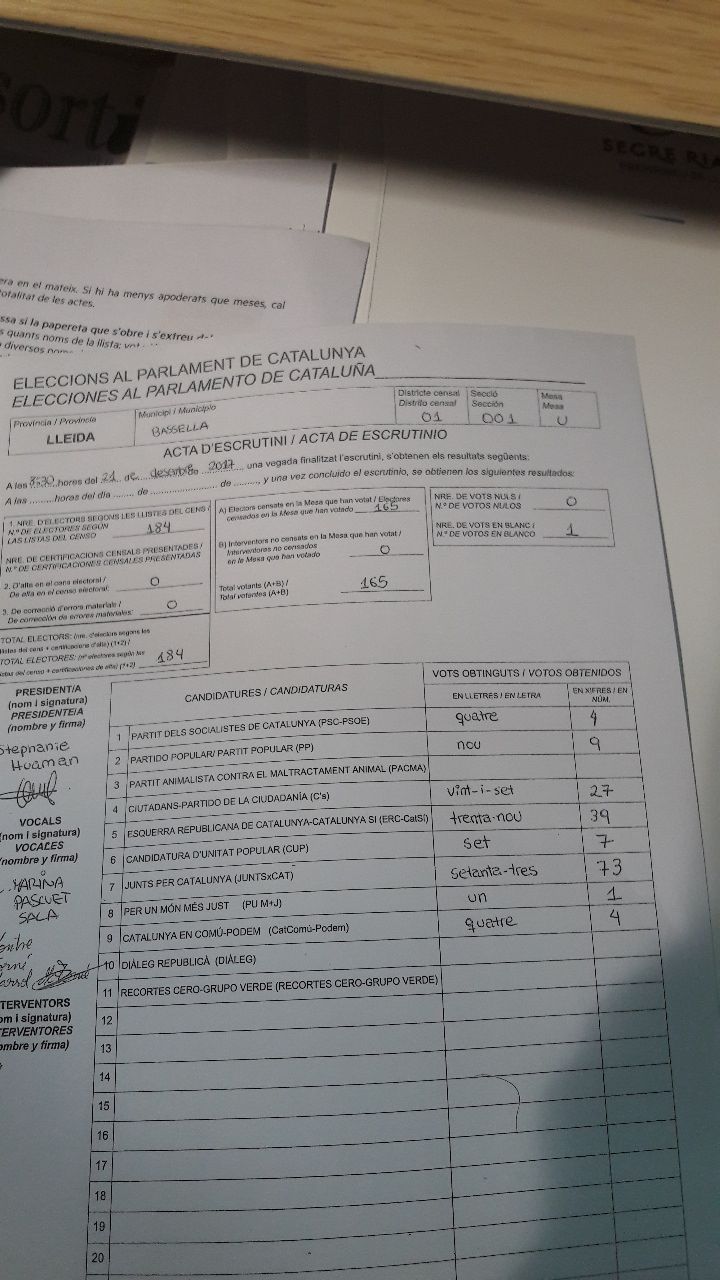 sorti
SEGRE RIA
era en el mateix. Si hi ha menys apoderats que meses, cal
totalitat de les actes.
ssa si la papereta que s'obre i s'extreu
s quants noms de la llista;
diversos
ELECCIONS AL PARLAMENT DE CATALUNYA
ELECCIONES AL PARLAMENTO DE CATALUÑA
Província / Provincia
LLEIDA
Municipi / Municipio
BASSELLA
Districte censal
Distrito censal
01
Secció
Sección
001
Mesa
Mesa
U
ACTA D'ESCRUTINI / ACTA DE ESCRUTINIO
A les 8:30 hores del 21 de desembre de 2017 una vegada finalitzat l'escrutini, s'obtenen els resultats següents:
A las ........ horas del día ....... de ........................ de ........., y una vez concluido el escrutinio, se obtienen los siguientes resultados:
1. NRE. D'ELECTORS SEGONS LES LLISTES DEL CENS /
N.º DE ELECTORES SEGÚN
LAS LISTAS DEL CENSO
184
NRE. DE CERTIFICACIONS CENSALS PRESENTADES /
N.º DE CERTIFICACIONES CENSALES PRESENTADAS
2. D'alta en el cens electoral /
De alta en el censo electoral: 0
3. De correcció d'errors materials /
De corrección de errores materiales: 0
TOTAL ELECTORS: (nre. d'electors segons les
llistes del cens + certificacions d'alta) (1+2) /
TOTAL ELECTORES: (nº electores según las
listas del censo + certificaciones de alta) (1+2) 184
A) Electors censats en la Mesa que han votat / Electores
censados en la Mesa que han votado 165
B) Interventors no censats en la Mesa que han votat /
Interventores no censados
en la Mesa que han votado 0
Total votants (A+B) /
Total votantes (A+B) 165
NRE. DE VOTS NULS /
N.º DE VOTOS NULOS 0
NRE. DE VOTS EN BLANC /
N.º DE VOTOS EN BLANCO 1
PRESIDENT/A
(nom i signatura)
PRESIDENTE/A
(nombre y firma)
Stephanie
Huaman
VOCALS
(nom i signatura)
VOCALES
(nombre y firma)
MARINA
PASCUET
SALA
INTERVENTORS
(nom i signatura)
INTERVENTORES
(nombre y firma)
CANDIDATURES / CANDIDATURAS
VOTS OBTINGUTS / VOTOS OBTENIDOS
EN LLETRES / EN LETRA
EN XIFRES / EN NÚM.
1 PARTIT DELS SOCIALISTES DE CATALUNYA (PSC-PSOE) quatre 4
2 PARTIDO POPULAR/ PARTIT POPULAR (PP) nou 9
3 PARTIT ANIMALISTA CONTRA EL MALTRACTAMENT ANIMAL (PACMA)
4 CIUTADANS-PARTIDO DE LA CIUDADANÍA (C's) vint-i-set 27
5 ESQUERRA REPUBLICANA DE CATALUNYA-CATALUNYA SI (ERC-CatSí) trenta-nou 39
6 CANDIDATURA D'UNITAT POPULAR (CUP) set 7
7 JUNTS PER CATALUNYA (JUNTSxCAT) setanta-tres 73
8 PER UN MÓN MÉS JUST (PU M+J) un 1
9 CATALUNYA EN COMÚ-PODEM (CatComú-Podem) quatre 4
10 DIÀLEG REPUBLICÀ (DIÀLEG)
11 RECORTES CERO-GRUPO VERDE (RECORTES CERO-GRUPO VERDE)
12
13
14
15
16
17
18
19
20